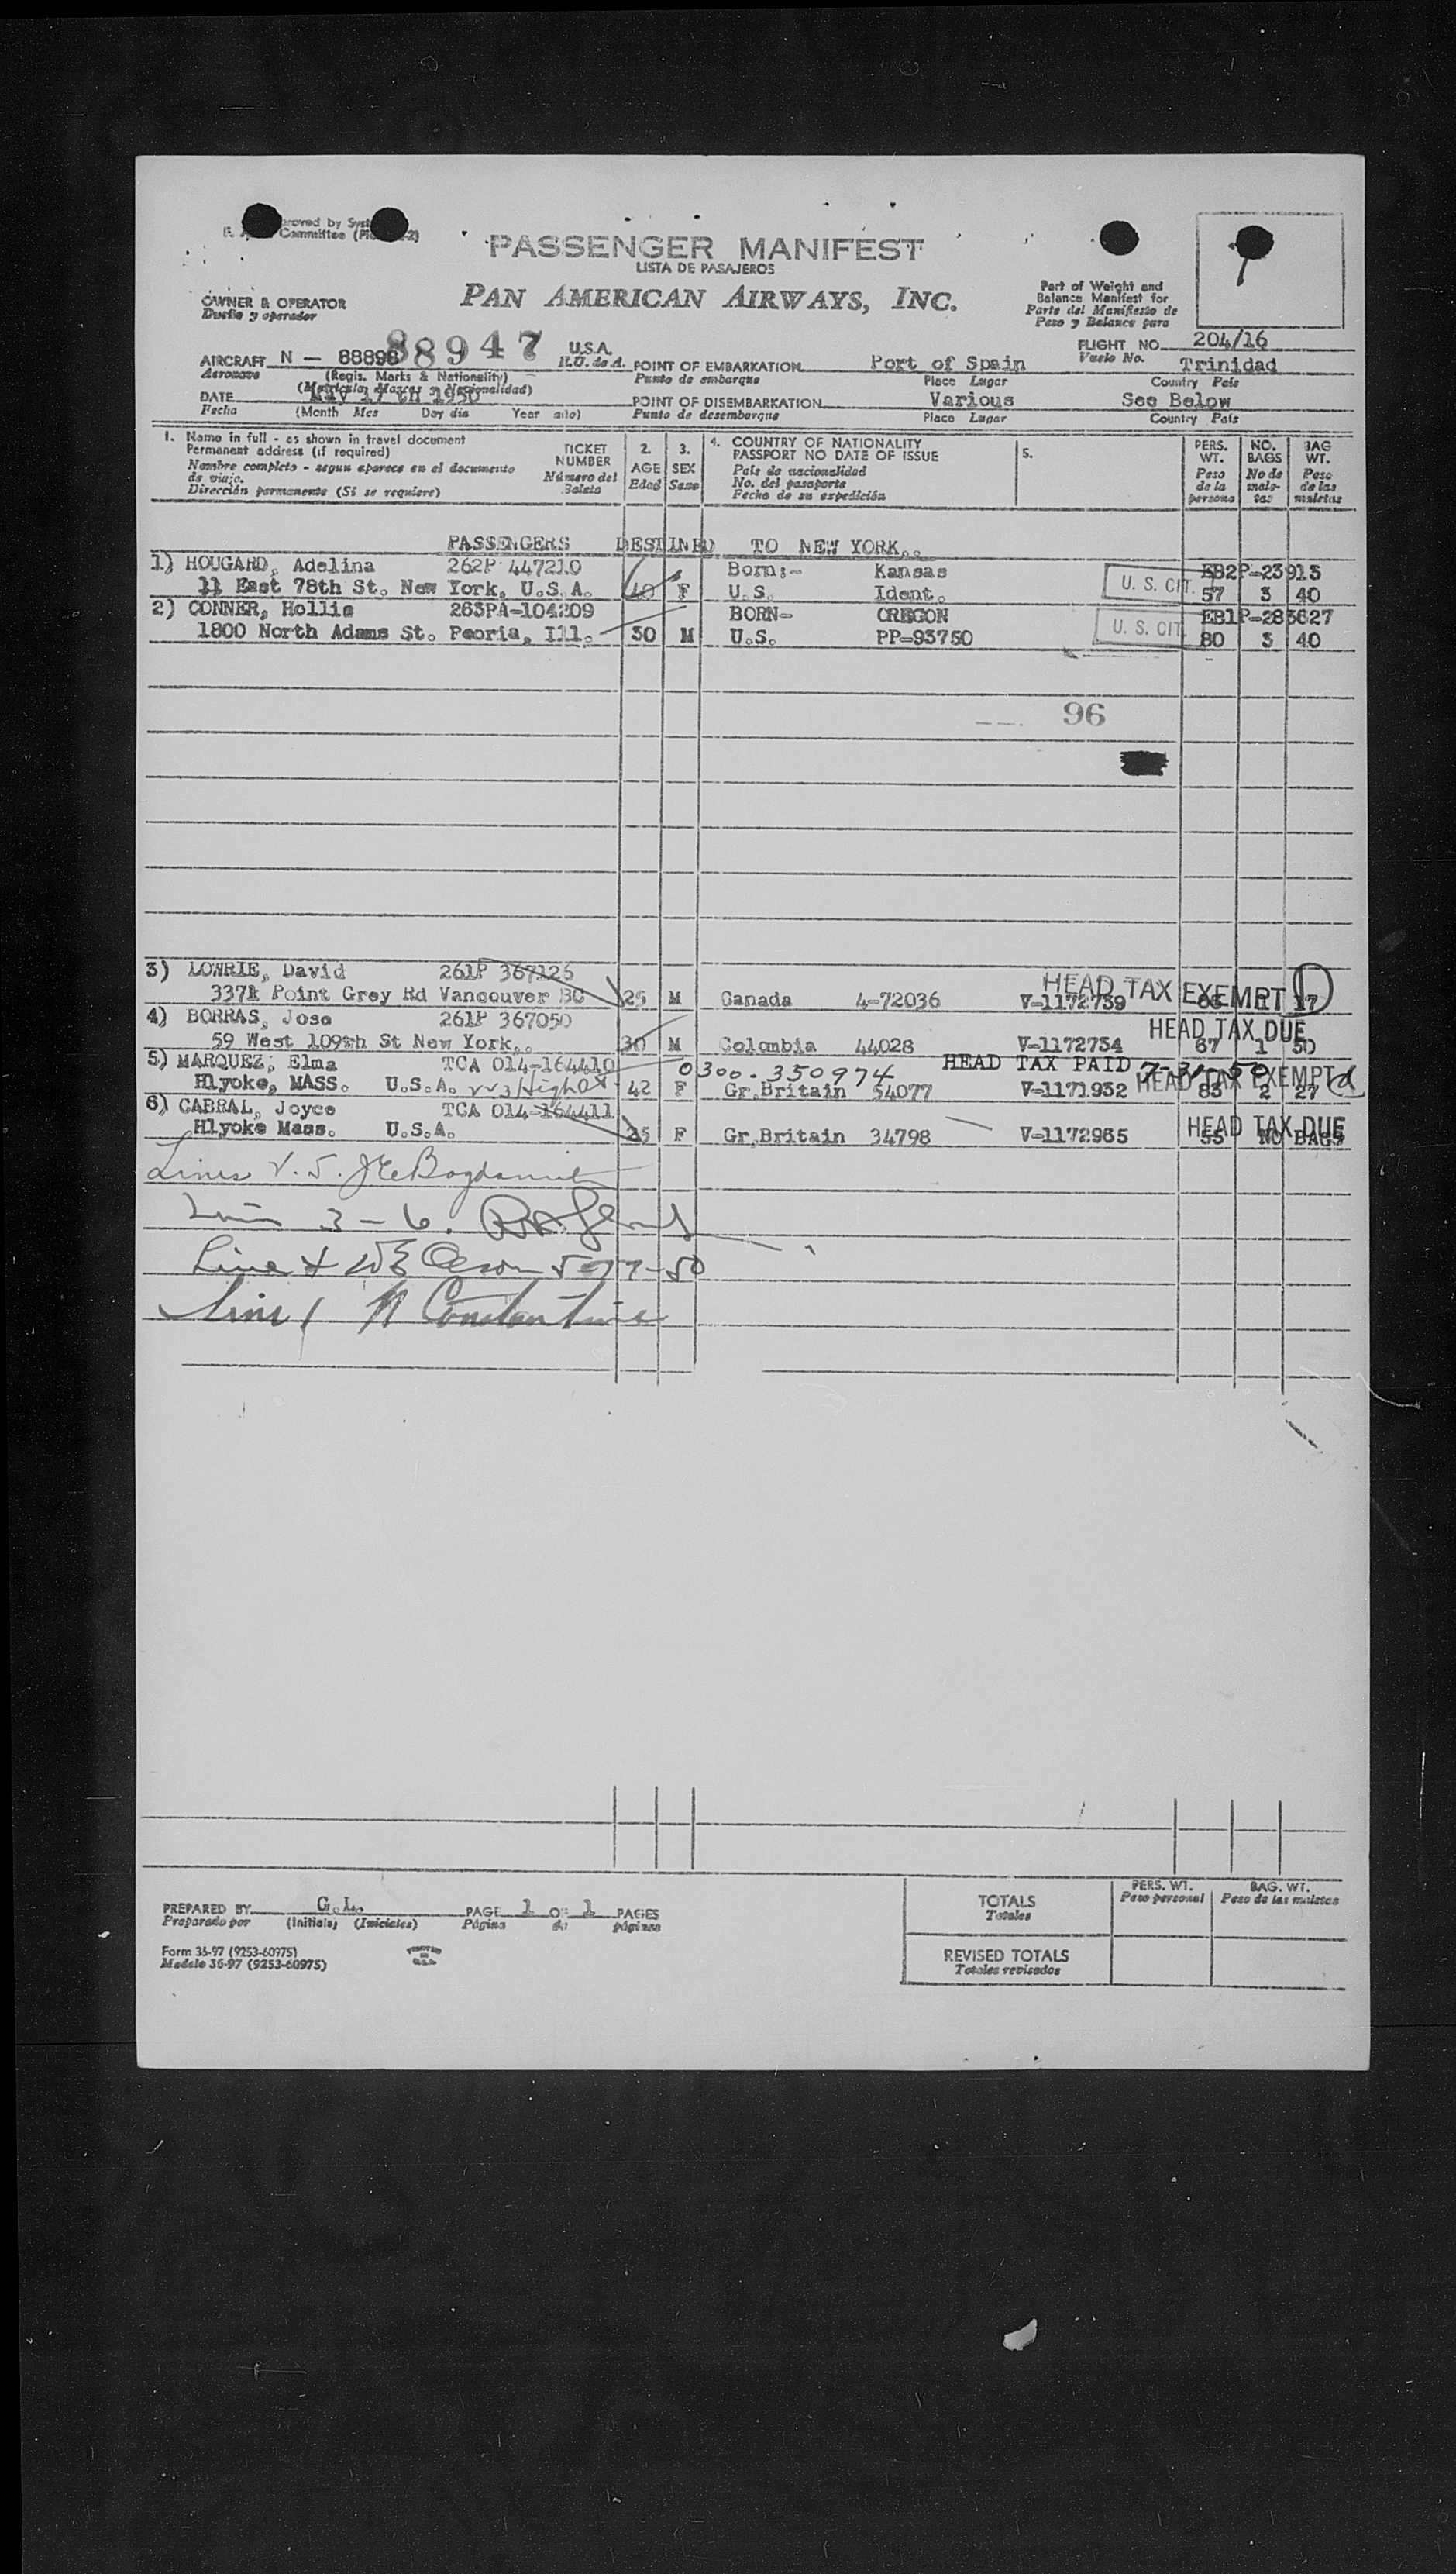 PASSENGER MANIFEST
LISTA DE PASAJEROS
PAN AMERICAN AIRWAYS, INC.
OWNER & OPERATOR
Dueño y operador
Part of Weight and
Balance Manifest for
Parte del Manifiesto de
Peso y Balance para
FLIGHT NO. 204/16
Vuelo No.
AIRCRAFT N — 88898 88947 U.S.A.
Aeronave (Regis. Marks & Nationality) E.U. de A.
POINT OF EMBARKATION Port of Spain Trinidad
Punto de embarque Place Lugar Country País
DATE May 17 th 1950
Fecha (Month Mes Day día Year año)
POINT OF DISEMBARKATION Various See Below
Punto de desembarque Place Lugar Country País
1. Name in full - as shown in travel document
Permanent address (if required)
Nombre completo - segun aparece en el documento
de viaje.
Dirección permanente (Si se requiere)
TICKET
NUMBER
Número del
Boleto
2.
AGE
Edad
3.
SEX
Sexo
4. COUNTRY OF NATIONALITY
PASSPORT NO DATE OF ISSUE
País de nacionalidad
No. del pasaporte
Fecha de su expedición
5.
PERS.
WT.
Peso
de la
persona
NO.
BAGS
No de
male-
tas
BAG
WT.
Peso
de las
maletas
PASSENGERS DESTINED TO NEW YORK..
1) HOUGARD, Adelina 262P 447210 Born:- Kansas EB2P-23913
11 East 78th St. New York, U.S.A. 40 F U.S. Ident. U. S. CIT. 57 3 40
2) CONNER, Hollis 263PA-104209 BORN- OREGON EB1P-283627
1800 North Adams St. Peoria, Ill. 30 M U.S. PP-93750 U. S. CIT. 80 3 40
96
3) LOWRIE, David 261P 367126 HEAD TAX EXEMPT
Point Grey Rd Vancouver BC 25 M Canada 4-72036 V-1172739 17
4) BORRAS, Jose 261P 367050 HEAD TAX DUE
59 West 109th St New York.. 30 M Colombia 44028 V-1172734 67 1 30
5) MARQUEZ, Elma TCA 014-164410 0300-350974 HEAD TAX PAID HEAD TAX EXEMPT
Hlyoke, MASS. U.S.A. 42 F Gr.Britain 54077 V-1171932 83 2 27
6) CABRAL, Joyce TCA 014-164411 HEAD TAX DUE
Hlyoke Mass. U.S.A. F Gr.Britain 34798 V-1172965 55 NO BAGS
Lines
3 - 6.
Line 5-17-50
Line 1 N Constantine
PREPARED BY G.L.
Preparado por (Initials) (Iniciales)
PAGE 1 OF 1 PAGES
Página de páginas
Form 36-97 (9253-60975)
Modelo 36-97 (9253-60975)
PERS. WT.
Peso personal
BAG. WT.
Peso de las maletas
TOTALS
Totales
REVISED TOTALS
Totales revisados